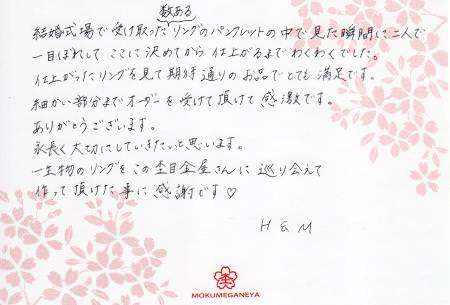 結婚式場で受け取った数あるリングのパンフレットの中で見た瞬間に二人で
一目ぼれして ここに決めてから 仕上がるまで わくわくでした。
仕上がったリングを見て期待通りのお品でとても満足です。
細かい部分までオーダーを受けて頂けて感激です。
ありがとうございます。
永長く大切にしていきたいと思います。
一生物のリングをこの杢目金屋さんに巡り会えて
作って頂けた事に感謝です♡
H & M
MOKUMEGANEYA